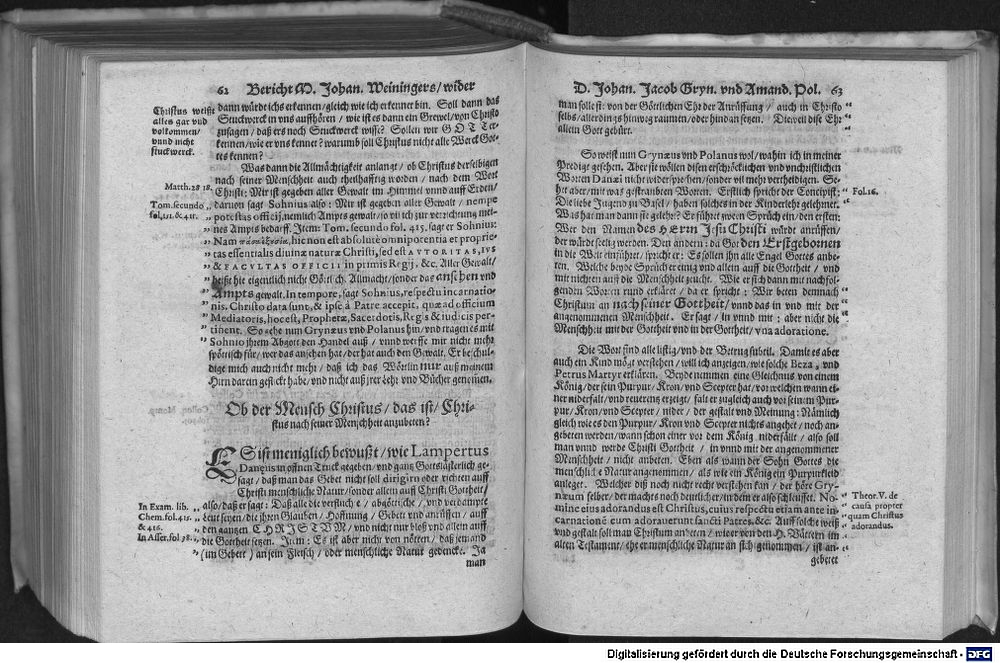 62 Bericht M. Johan. Weiningers/ wider
Christus weißt
alles gar vnd
volkommen/
vnnd nicht
stuckwerck.
dann würde ichs erkennen/ gleich wie ich erkennet bin. Soll dann das
Stuckworck in vns auffhören / wie ist es dann ein Grewel/ von Christo
zusagen / daß ers noch Stuckwerck wisse? Sollen wir GOTT er-
kennen/ wie er vns kennet? warumb soll Christus nicht alle Werck Got-
tes kennen?
Was dann die Allmächtigkeit anlangt/ ob Christus derselbigen
nach seiner Menschheit auch theilhafftig worden / nach dem Wort
Matth. 28 18.
Christi: Mir ist gegeben aller Gewalt im Himmel vnnd auff Erden/
Tom. secundo
fol. 151. & 411.
darvon sagt Sohnius also: Mir ist gegeben aller Gewalt / nempe
potestas officij, nemlich Ampts gewalt/ so vil ich zur verrichtung mei-
nes Ampts bedarff. Item: Tom. secundo fol. 415. sagt er Sohnius:
Nam hic non est absolute omnipotentia et proprie-
tas essentialis divinæ naturæ Christi, sed est AVTORITAS, IVS
& FACVLTAS OFFICII in primis Regij, &c. Aller Gewalt/
heißt hie eigentlich nicht Göttlich. Allmacht/ sonder das ansehen vnd
Ampts gewalt. In tempore, sagt Sohnius, respectu incarnatio-
nis. Christo data sunt, & ipse à Patre accepit, quæ ad officium
Mediatoris, hoc est, Prophetæ, Sacerdotis, Regis & iudicis per-
tinent. So sehe nun Grynæus vnd Polanus hin/ vnd tragen es mit
Sohnio jhrem Abgott den Handel auß / vnnd werffe mir nicht mehr
spöttisch für/ wer das ansehen hat/ der hat auch den Gewalt. Er beschul-
dige mich auch nicht mehr / daß ich das Wörtlin nur auß meinem
Hirn darein geflickt habe/ vnd nicht auß jrer Lehr vnd Bücher genomen.
Ob der Mensch Christus / das ist/ Chri-
stus nach seiner Menschheit anzubeten?
ES ist meniglich bewußt / wie Lampertus
Danęus in offnen Truck gegeben/ vnd gantz Gottslästerlich ge-
sagt / daß man das Gebet nicht soll dirigirn oder richten auff
Christi menschliche Natur/ sonder allein auff Christi Gottheit/
In Exam. lib.
Chem. fol. 415.
& 416.
In Asser. fol 38.
also/ daß er sagt: Daß alle die verfluchte / abgötische / vnd verdampte
Leut seyen/ die jhren Glauben / Hoffnung / Gebett vnd anrüffen / auff
den gantzen CHRISTVM / vnd nicht nur bloß vnd allein auff
die Gottheit setzen. Item: Es ist aber nicht von nöten / daß jemand
(im Gebett) an sein Fleisch / oder menschliche Natur gedencke. Ja
man
D. Johan. Jacob Gryn. vnd Amand. Pol. 63
man solle st: von der Göttlichen Ehr der Anrüffung / auch in Christo
selbs/ allerding hinweg raumen/ oder hindan setzen. Dieweil dise Ehr
allein Gott gebürt.
So weist nun Grynæus vnd Polanus wol/ wahin ich in meiner
Predigt gesehen. Aber sie wöllen disen erschröcklichen vnd vnchristlichen
Worten Danæi nicht widersprechen/ sonder vil mehr vertheidigen. Se-
het aber/ mit was gestraubten Worten. Erstlich spricht der Concipist:
Fol. 16.
Die liebe Jugend zu Basel / haben solches in der Kinderlehr gelehrnet.
Was hat man dann sie gelehrt? Er führet zween Sprüch ein/ den ersten:
Wer den Namen des HErrn Jesu Christi würdt anrüffen/
der würdt seelig werden. Den andern: da Gott den Erstgebornen
in die Welt einführet / spricht er: Es sollen jhn alle Engel Gottes anbe-
ten. Welche beyde Sprüch er einig vnd allein auff die Gottheit / vnd
mit nichten auff die Menschheit zeucht. Wie er sich dann mit nachfol-
genden Worten rund erkläret / da er spricht: Wir beten demnach
Christum an nach seiner Gottheit/ vnnd das in vnd mit der
angenommenen Menschheit. Er sagt / in vnnd mit: aber nicht die
Menschheit mit der Gottheit vnd in der Gottheit/ vna adoratione.
Die Wort sind alle listig/ vnd der Betrug subtil. Damit es aber
auch ein Kind mögt verstehen / will ich anzeigen/ wie solche Beza, vnd
Petrus Martyr erklären. Beyde nemmen eine Gleichnus von einem
König/ der sein Purpur / Kron/ vnd Scepter hat/ vor welchen wann ei-
ner niderfalt/ vnd reverentz erzeigt/ falt er zugleich auch vor seinem Pur-
pur / Kron/ vnd Scepter / nider / der gestalt vnd Meinung: Nämlich
gleich wie es den Purpur / Kron vnd Scepter nichts angehet / noch an-
gebetten werden/ wann schon einer vor dem König niderfällt / also soll
man vnnd werde Christi Gottheit / in vnnd mit der angenommenen
Menschheit / nicht anbeten. Eben als wann der Sohn Gottes die
menschliche Natur angenommen / als wie ein König ein Purpurkleid
anleget. Welcher diß noch nicht recht verstehen kan / der höre Gry-
næum selber/ der machts noch deutlicher/ in dem er also schleusset. No-
Theor. V. de
causa propter
quam Christus
adorandus.
mine eius adorandus est Christus, cuius respectu etiam ante in-
carnationē eum adoraverunt sancti Patres, &c. Auff solche weiß
vnd gestalt soll man Christum anbeten / wie er von den H. Vättern im
alten Testament/ ehe er menschliche Natur an sich genommen / ist an-
gebetet
Digitalisierung gefördert durch die Deutsche Forschungsgemeinschaft - DFG